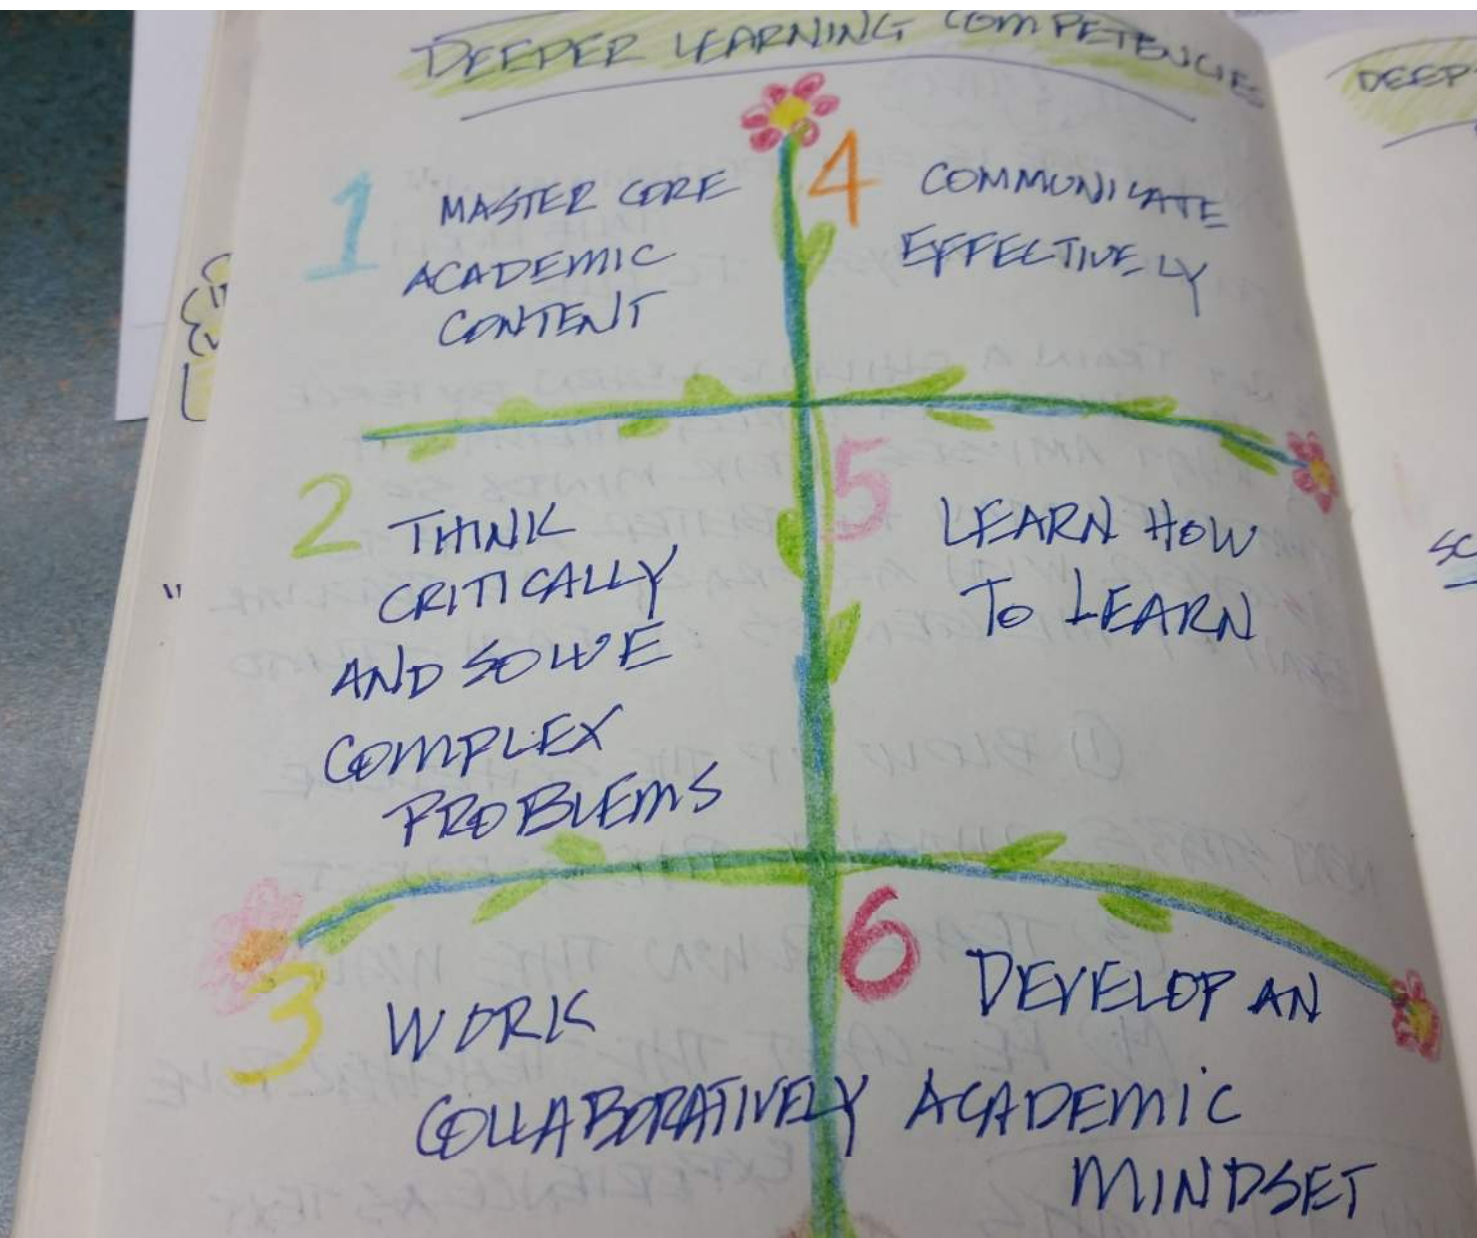 DEEPER LEARNING COMPETENCIES
1 MASTER CORE
ACADEMIC
CONTENT
2 THINK
CRITICALLY
AND SOLVE
COMPLEX
PROBLEMS
3 WORK
COLLABORATIVELY
4 COMMUNICATE
EFFECTIVELY
5 LEARN HOW
TO LEARN
6 DEVELOP AN
ACADEMIC
MINDSET
DEEP
SC